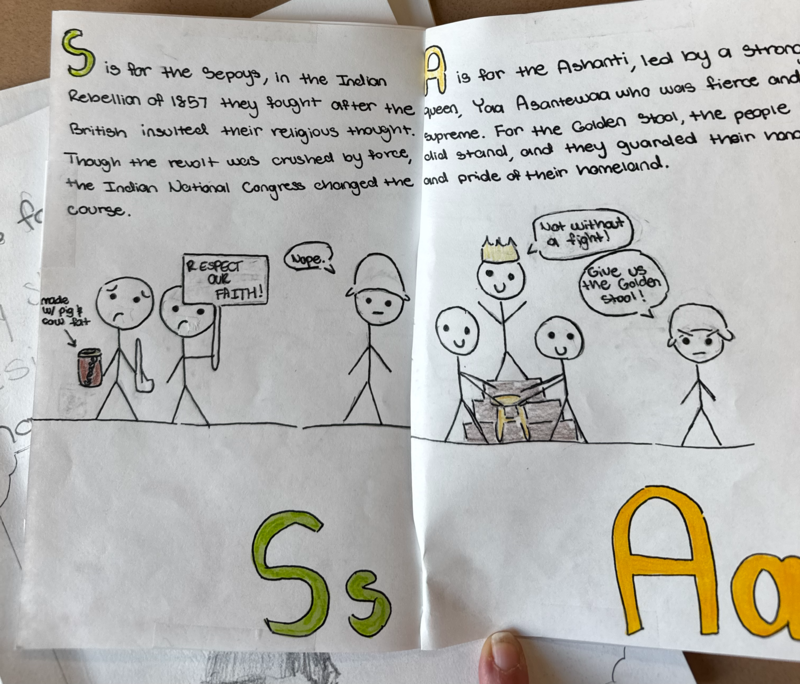 S is for the Sepoys, in the Indian
Rebellion of 1857 they fought after the
British insulted their religious thought.
Though the revolt was crushed by force,
the Indian National Congress changed the
course.
made
w/ pig &
cow fat
RESPECT
OUR
FAITH!
Nope.
Ss
A is for the Ashanti, led by a strong
queen, Yaa Asantewaa who was fierce and
supreme. For the Golden Stool, the people
did stand, and they guarded their
and pride of their homeland.
Not without
a fight!
Give us
the Golden
Stool!
Aa